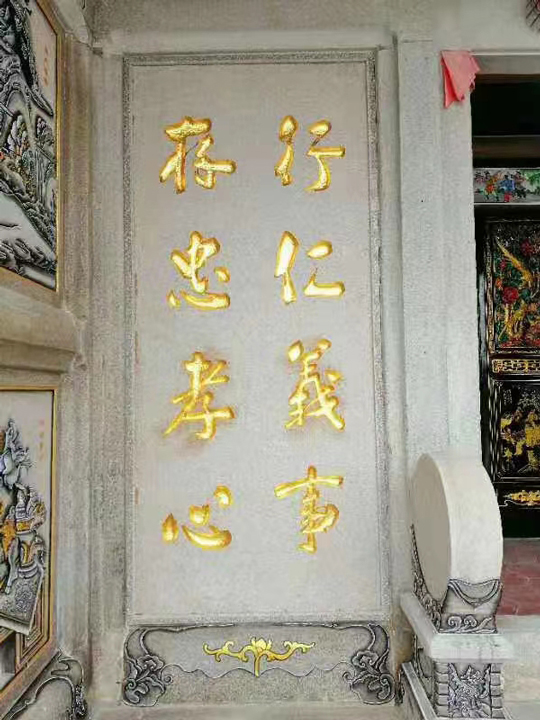 行仁義事
存忠孝心